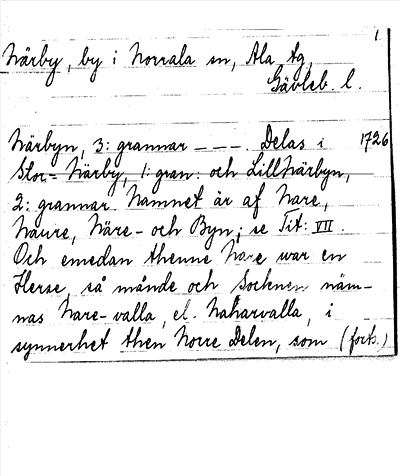 1.
Närby, by i Norrala sn, Ala tg,
Gävleb. l.
Närbyn, 3: grannar - - -. Delas i 1726
Stor-Närby, 1: gran: och LillNärbyn,
2: grannar. Namnet är af Nare,
Naure, Näre- och Byn; se Tit: VII.
Och emedan thenne Nare war en
Herse, så månde och Socknen näm-
nas Nare-valla, el. Naharvalla, i
synnerhet then Norre Delen, som (forts.)